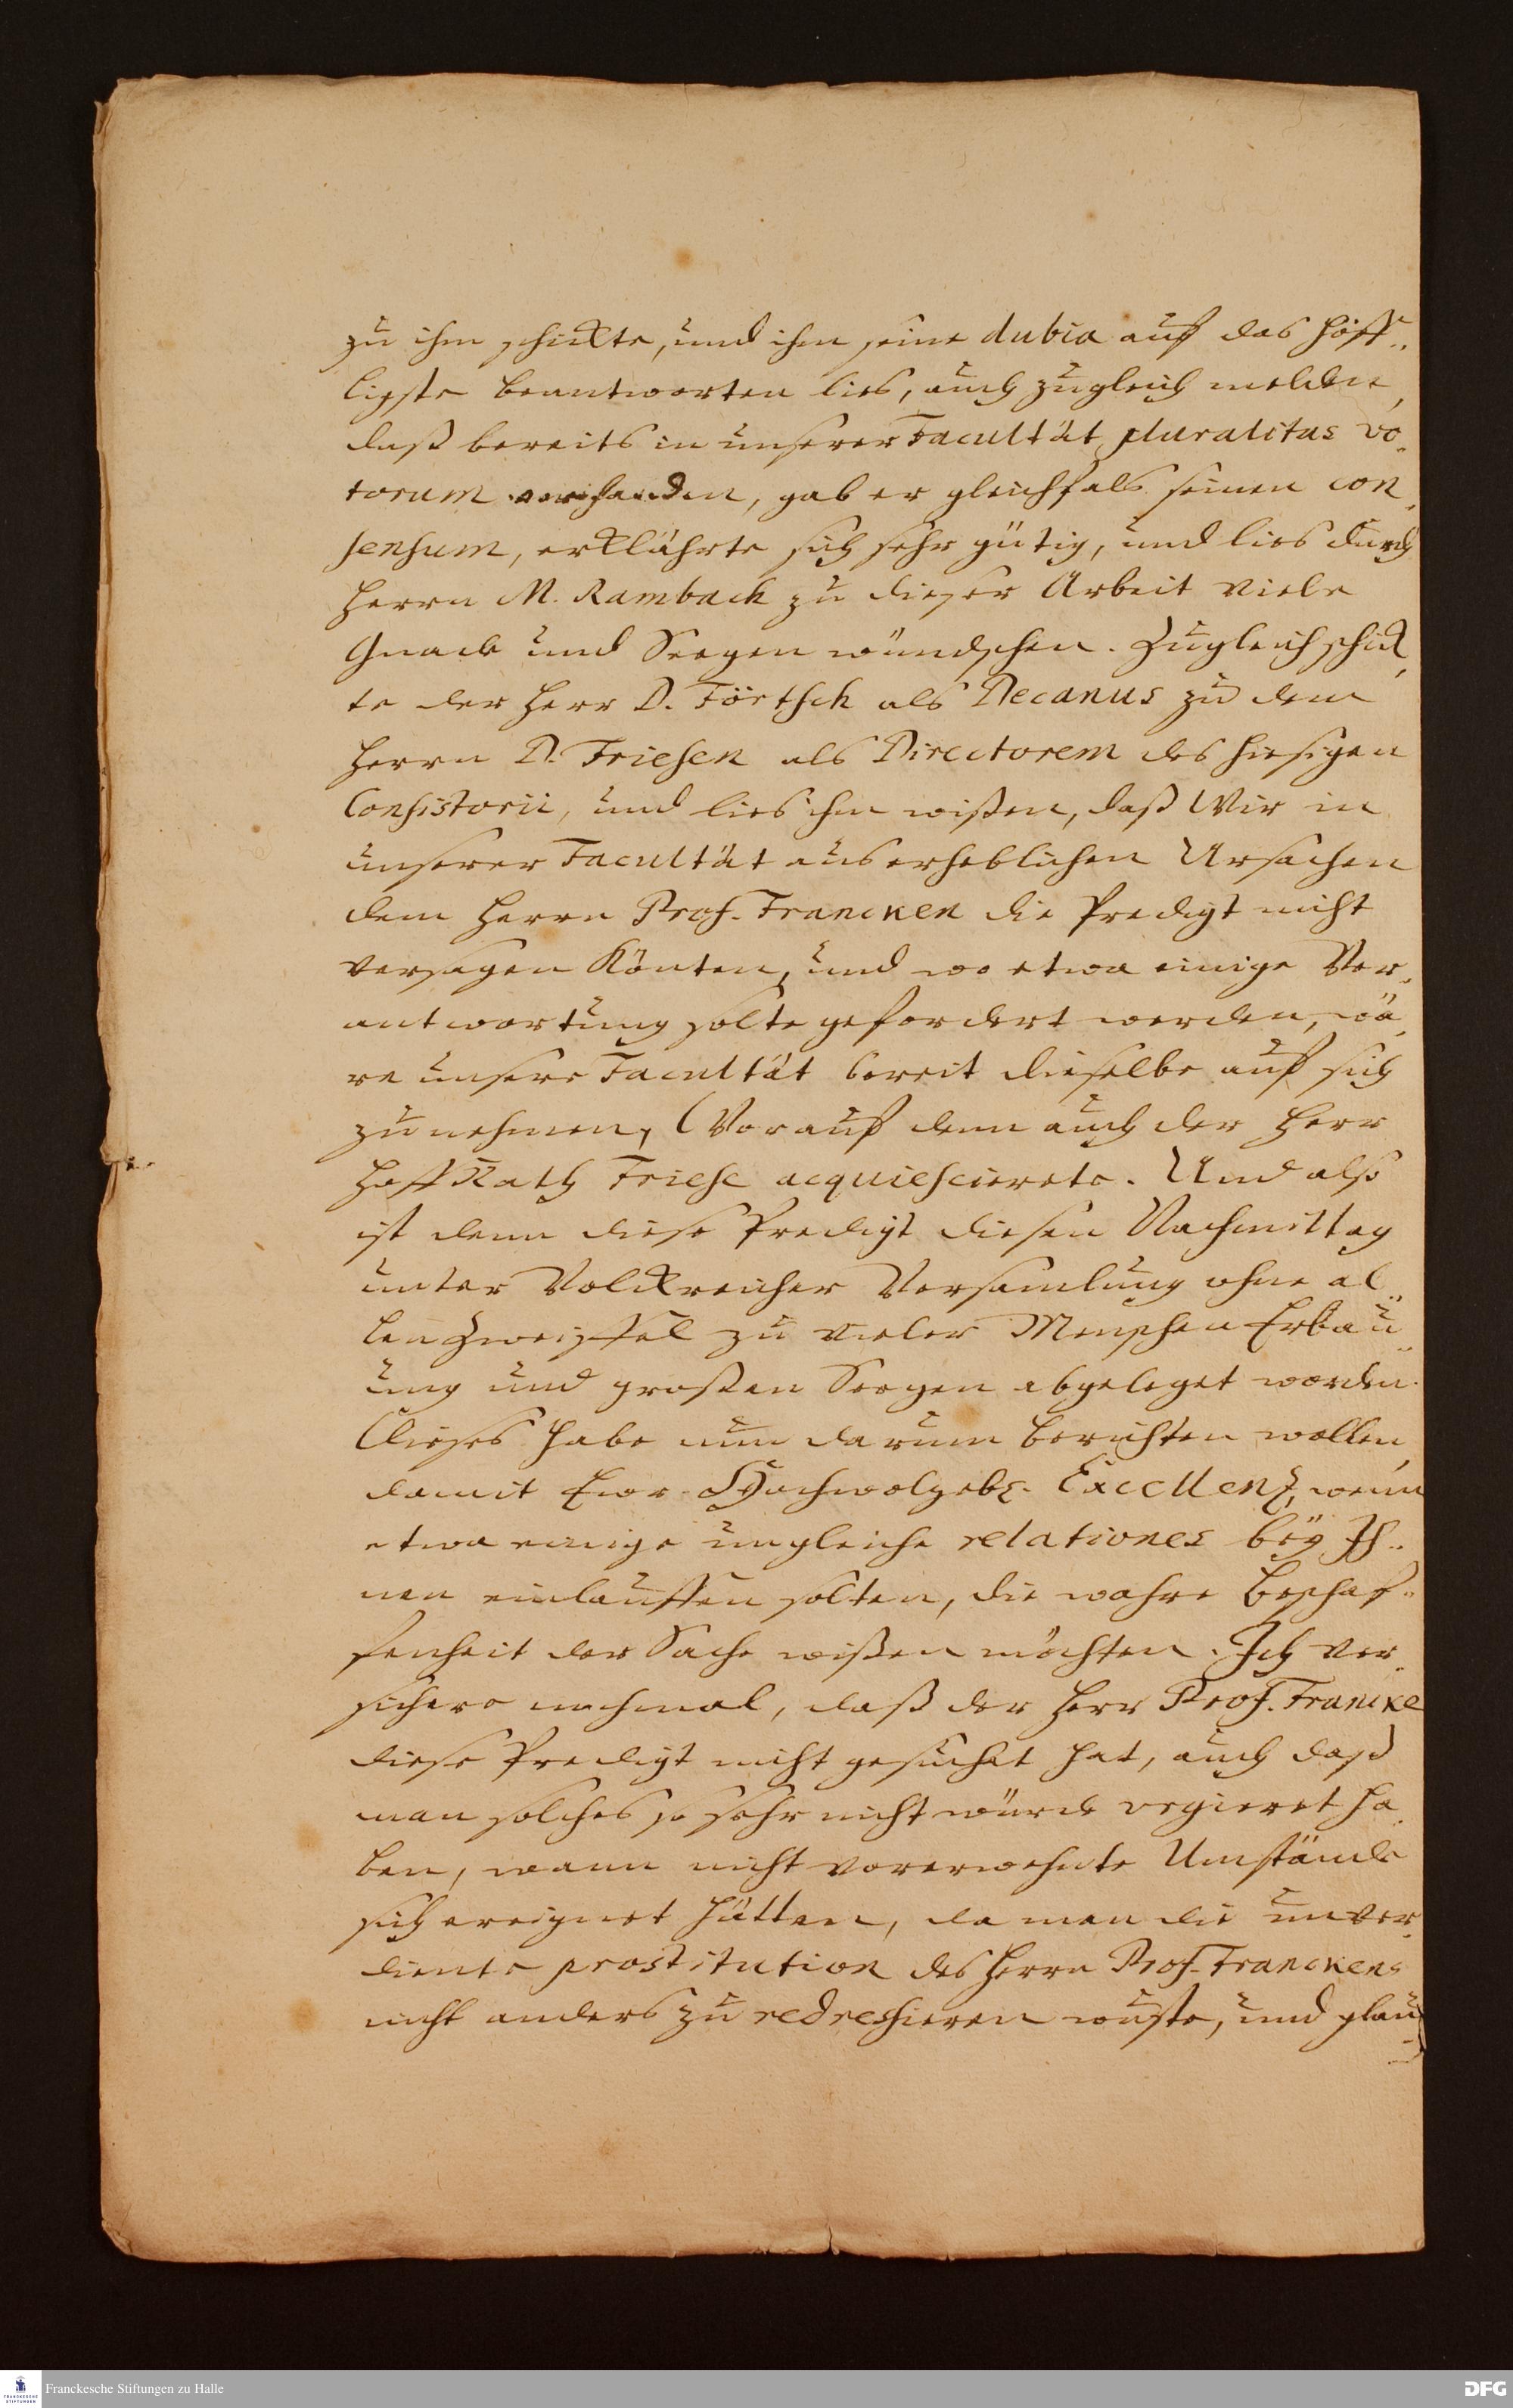 zu ihm schickte, und ihm seine dubia auf das höff-
ligste beantworten lies, auch zugleich melden,
daß bereits in unserer Facultät pluralitas vo-
torum vorhanden, gab er gleichfals seinen con-
sensum, erklährte sich sehr gütig, und lies durch
Herrn M. Rambach zu dieser Arbeit viele
Gnade und Seegen wündschen. Zugleich schick-
te der Herr D. Förtsch als Decanus zu dem
Herrn D. Friesen als Directorem des hiesigen
Consistorii, und lies ihm wißen, daß Wir in
unserer Facultät aus erheblichen Ursachen
dem Herrn Prof. Francken die Predigt nicht
versagen könten, und wo etwa einige Ver-
antwortung solte gefordert werden, wä-
re unsere Facultät bereit dieselbe auf sich
zu nehmen, Worauf denn auch der Herr
HoffRath Friese acquiescierete. Und also
ist denn diese Predigt diesen Nachmittag
unter Volckreicher Versamlung ohne al-
len Zweiffel zu vieler Menschen Erbau-
ung und großen Seegen abgeleget worden.
Dieses habe nun darum berichten wollen,
damit Ewr. Hochwolgeb. Excellenz, wenn
etwa einige ungleiche relationes bey Ih-
nen einlauffen solten, die wahre Beschaf-
fenheit der Sache wißen möchten. Ich ver-
sichere nochmal, daß der Herr Prof. Francke
diese Predigt nicht gesuchet hat, auch daß
man solches so sehr nicht würde urgieret ha-
ben, wann nicht vorerwehnte Umstände
sich ereignet hätten, da man die unver-
diente prostitution des Herrn Prof. Franckens
nicht anders zu redressieren wuste, und glau-
Franckesche Stiftungen zu Halle
DFG